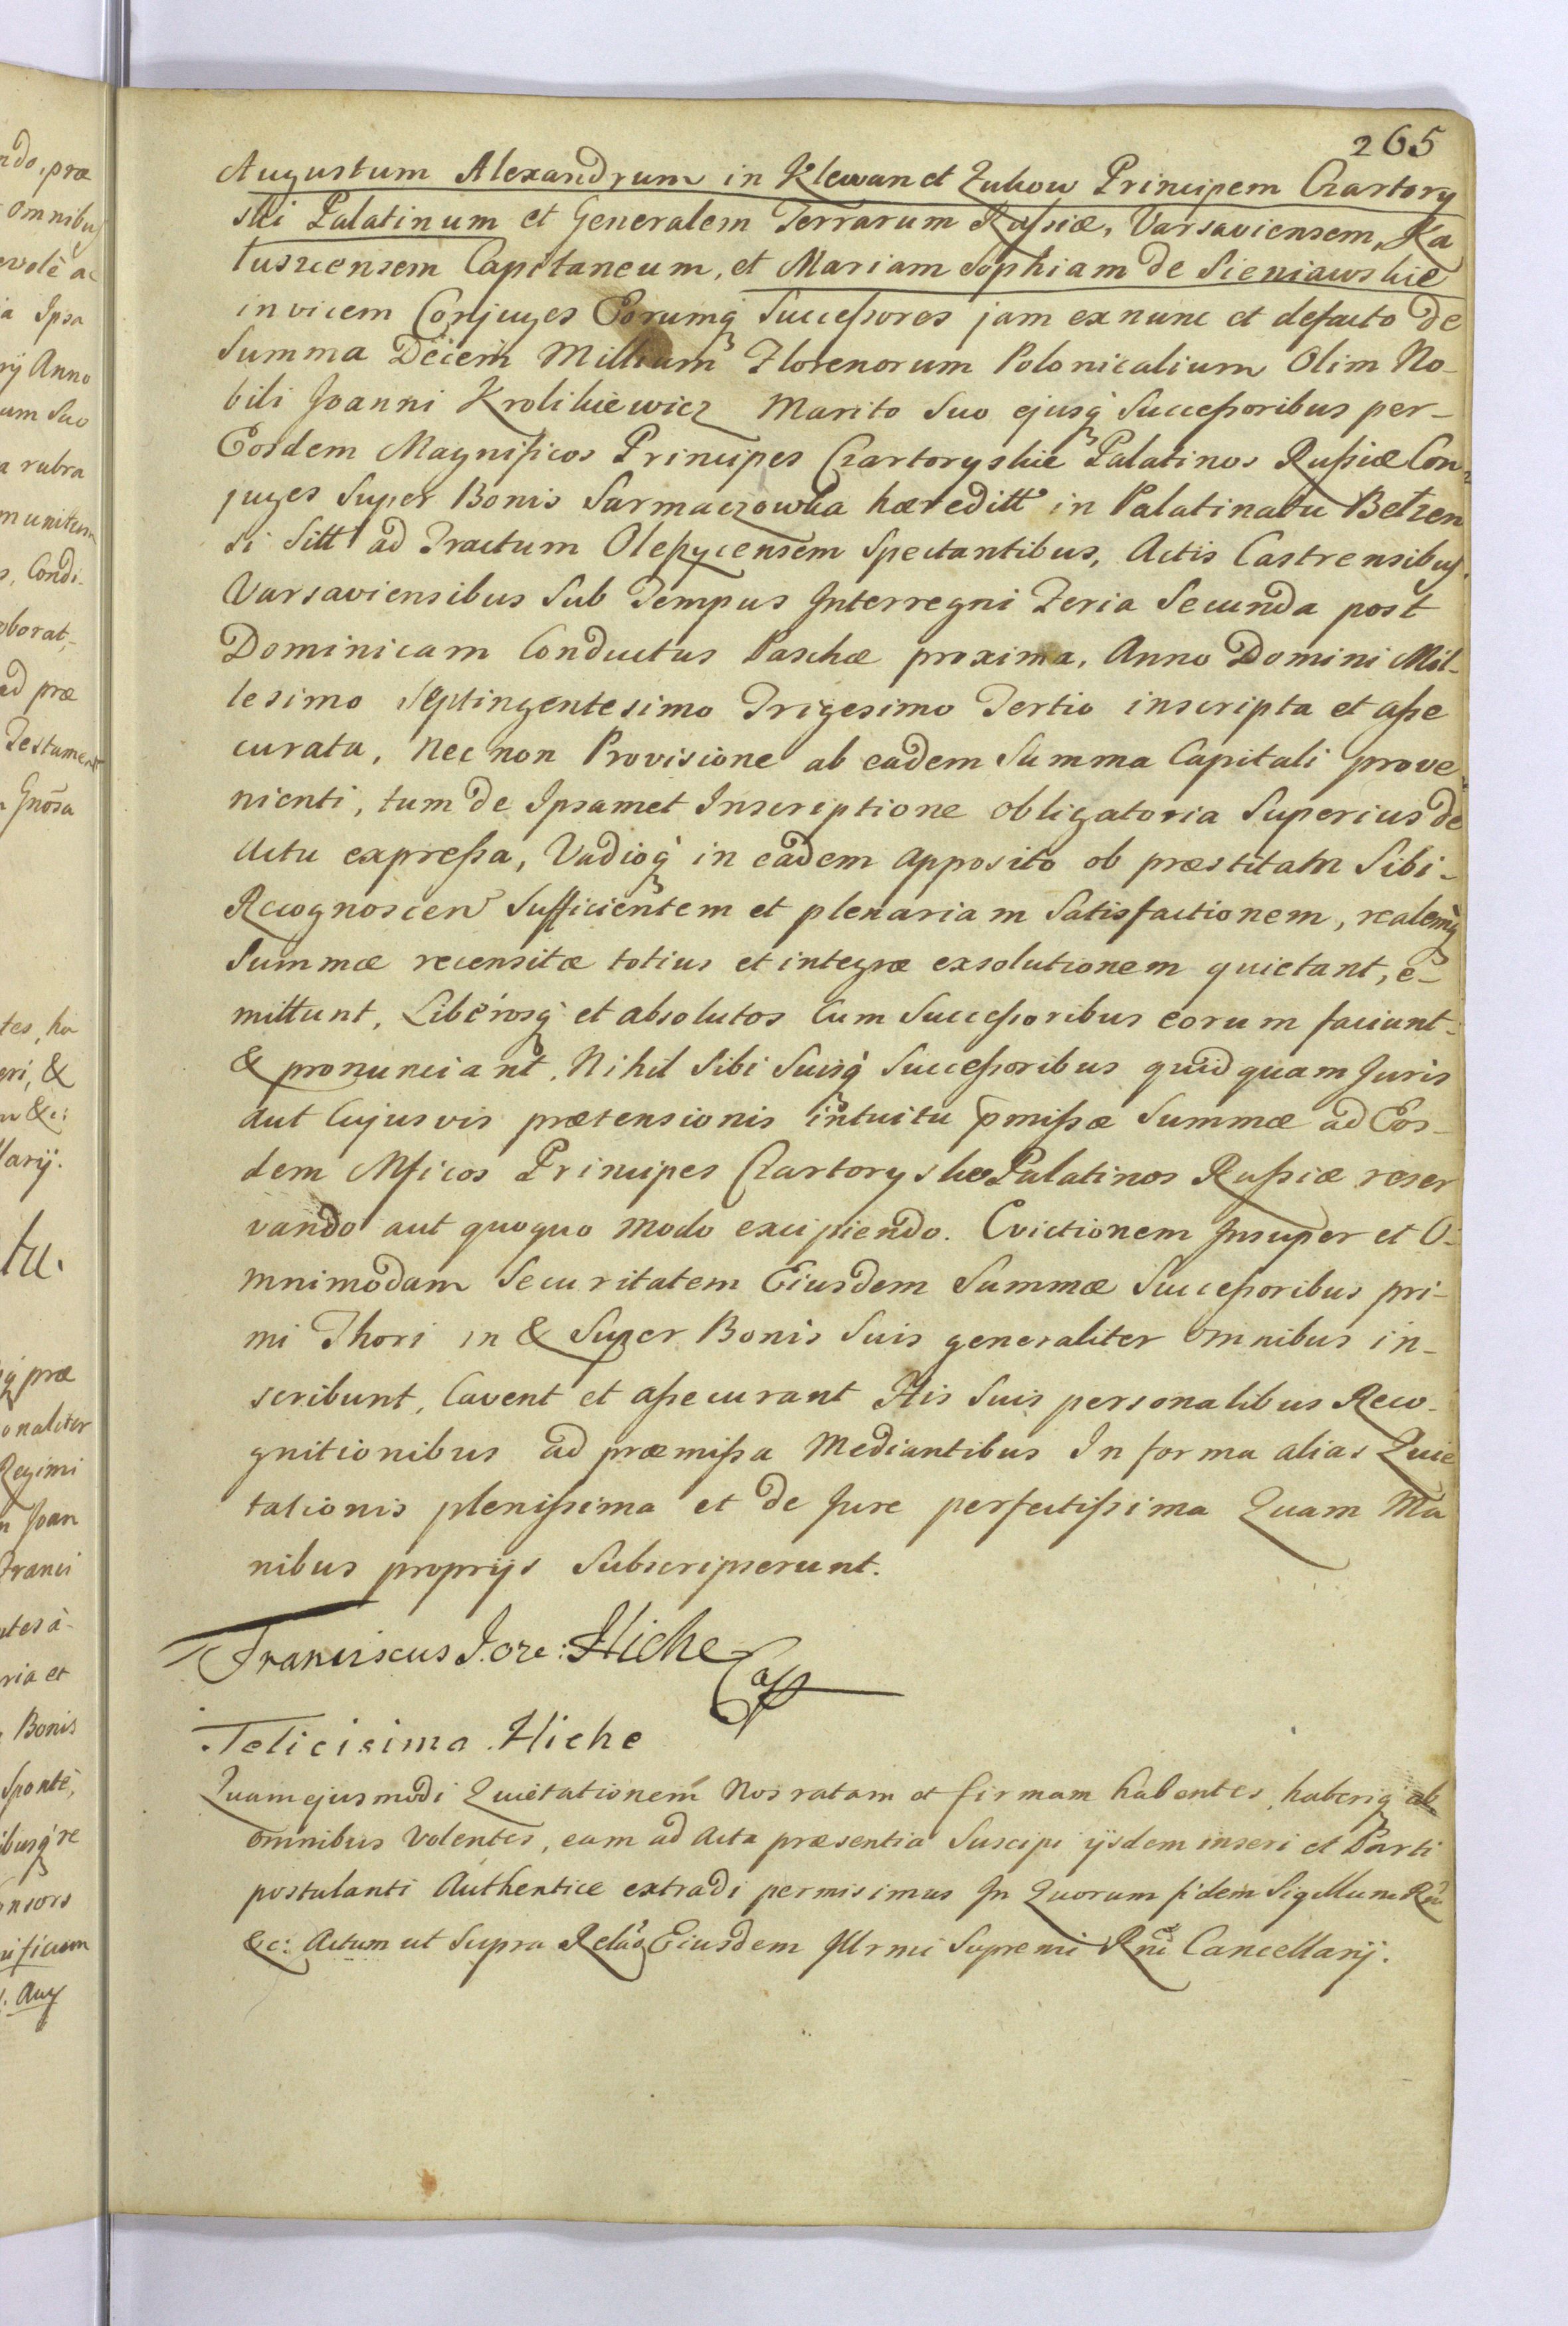 265
Augustum Alexandrum in Klewan et Zukow Principem Czartory
ski Palatinum et Generalem Terrarum Russiæ, Varsaviensem, Ka
łuszcensem Capitaneum, et Mariam Sophiam de Sieniawskie
invicem Conjuges Eorumq́ Successores jam exnunc et defacto de
Summa Decem Millium Florenorum Polonicalium Olim No-
bili Joanni Krolikiewicz Marito Suo ejusq́ Successoribus per-
Eosdem Magnificos Principes Czartoryskie Palatinos Russiæ Con-
juges Super Bonis Sarmaczowka hæreditt in Palatinatu Betzen
si Sitt ad Tractum Oleszycensem Spectantibus, Actis Castrensibus
Varsaviensibus Sub Tempus Interregni Feria Secunda post
Dominicam Conductus Paschæ proxima, Anno Domini Mil-
lesimo Septingentesimo Trigesimo Tertio inscripta et asse
curata, Nec non Provisione ab eadem Summa Capitali prove
nienti, tum de Ipsamet Inscriptione obligatoria Superius de
Actu expressa, Vadioq́ in eadem apposito ob præstitam Sibi-
Recognoscen Sufficientem et plenariam Satisfactionem, realemq́
Summæ recensitæ totius et integræ exsolutionem quietant, e-
mittunt, Liberosq́ et absolutos Cum Successoribus eorum faciunt-
& pronunciant. Nihil Sibi Suisq́ Successoribus quidquam Juris
aut Cujusvis prætensionis intuitu p̄missæ Summæ ad Eos-
dem Mficos Principes Czartoryskie Palatinos Russiæ reser
vando aut quoquo modo excipiendo. Evictionem Insuper et O-
mnimodam Securitatem Eiusdem Summæ Successoribus pri-
mi Thori in & Super Bonis Suis generaliter omnibus in-
scribunt, Cavent et assecurant His Suis personalibus Reco-
gnitionibus ad præmissa Mediantibus In forma alias Quie
tationis plenissima et de Jure perfectissima Quam Ma
nibus proprijs Subscripserunt.
Franciscus Hiche
Felicisima Hiche
Quam ejusmodi Quietationem Nos ratam et firmam habentes, haberiq́ ab
omnibus Volentes, eam ad Acta præsentia Suscipi ijsdem inseri et Parti
postulanti Authentice extradi permisimus In Quorum fidem Sigillum Rni
&c: Actum ut Supra Relāo Eiusdem Illrmi Supremi Rni Cancellarij.